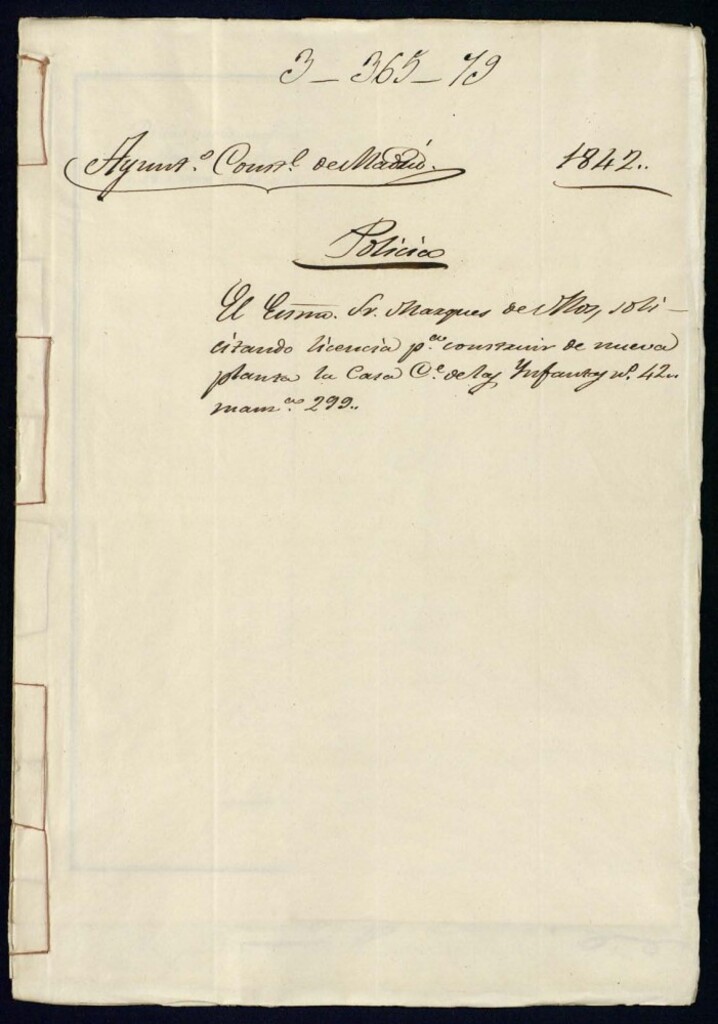 3-365-79
Ayunt.º Const.l de Madrid.
1842..
Policia
El Exmo. Sr. Marques de Mos, soli-
citando licencia p.ª construir de nueva
planta la Casa C.e de las Infantas nº. 42..
manz.ª 299..